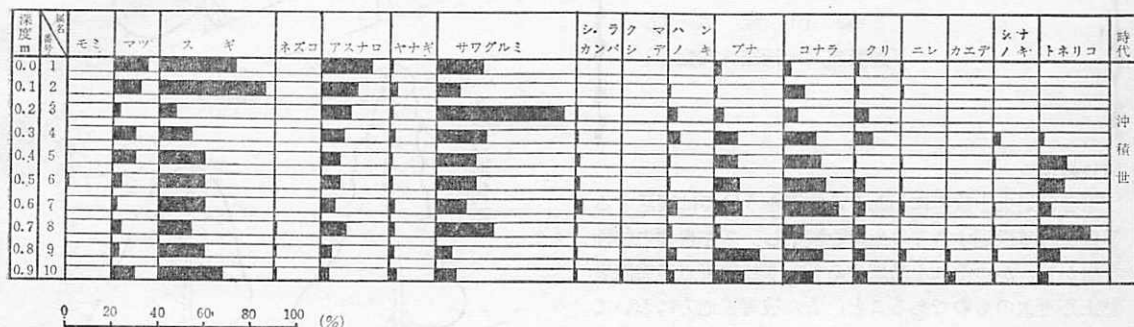 深度m 番号 属名 モミ マツ スギ ネズコ アスナロ ヤナギ サワグルミ シラカンバ クマシデ ハンノキ ブナ コナラ クリ ニレ カエデ シナノキ トネリコ 時代
0.0 1
0.1 2
0.2 3
0.3 4
0.4 5
0.5 6
0.6 7
0.7 8
0.8 9
0.9 10
沖積世
0 20 40 60 80 100 (%)